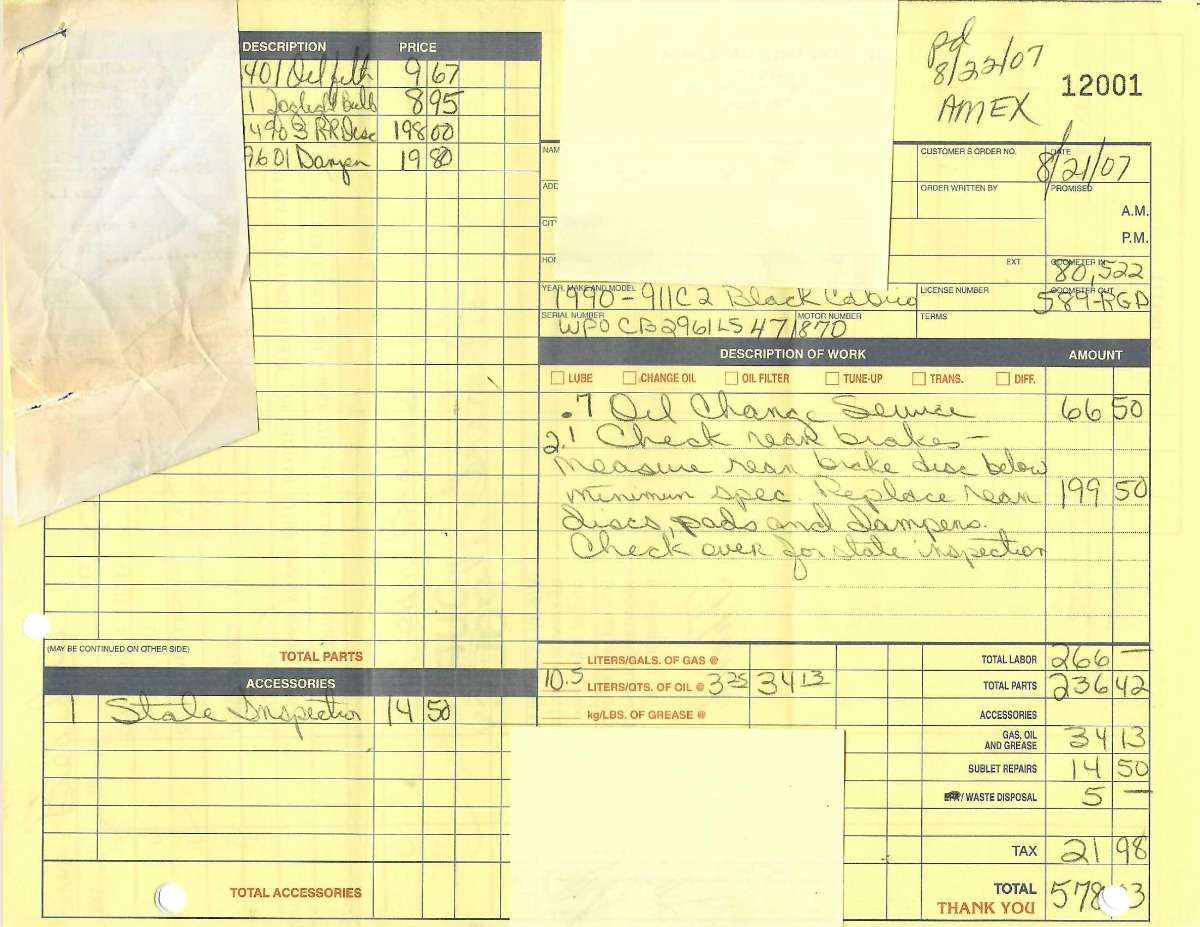 DESCRIPTION PRICE
401 Oil filt 9 67
1 Bulb 8 95
4903 RR Disc 198 00
9601 Dampen 19 80
pd
8/22/07
AMEX
12001
NAM
ADD
CIT
HOM
CUSTOMER'S ORDER NO. DATE 8/21/07
ORDER WRITTEN BY PROMISED
A.M.
P.M.
EXT. ODOMETER IN 80,522
YEAR, MAKE AND MODEL 1990 - 911C2 Black Cabrio LICENSE NUMBER ODOMETER OUT 589-RGD
SERIAL NUMBER WPOCB2961LS471870 MOTOR NUMBER TERMS
DESCRIPTION OF WORK AMOUNT
LUBE CHANGE OIL OIL FILTER TUNE-UP TRANS. DIFF.
.7 Oil Change Service 66 50
2.1 Check rear brakes -
measure rear brake disc below
minimum spec. Replace rear 199 50
discs, pads and dampens.
Check over for state inspection
(MAY BE CONTINUED ON OTHER SIDE) TOTAL PARTS
ACCESSORIES
1 State Inspection 14 50
TOTAL ACCESSORIES
LITERS/GALS. OF GAS @
10.5 LITERS/QTS. OF OIL @ 3 25 34 13
kg/LBS. OF GREASE @
TOTAL LABOR 266 —
TOTAL PARTS 236 42
ACCESSORIES
GAS, OIL
AND GREASE 34 13
SUBLET REPAIRS 14 50
/ WASTE DISPOSAL 5 —
TAX 21 98
TOTAL 578 3
THANK YOU